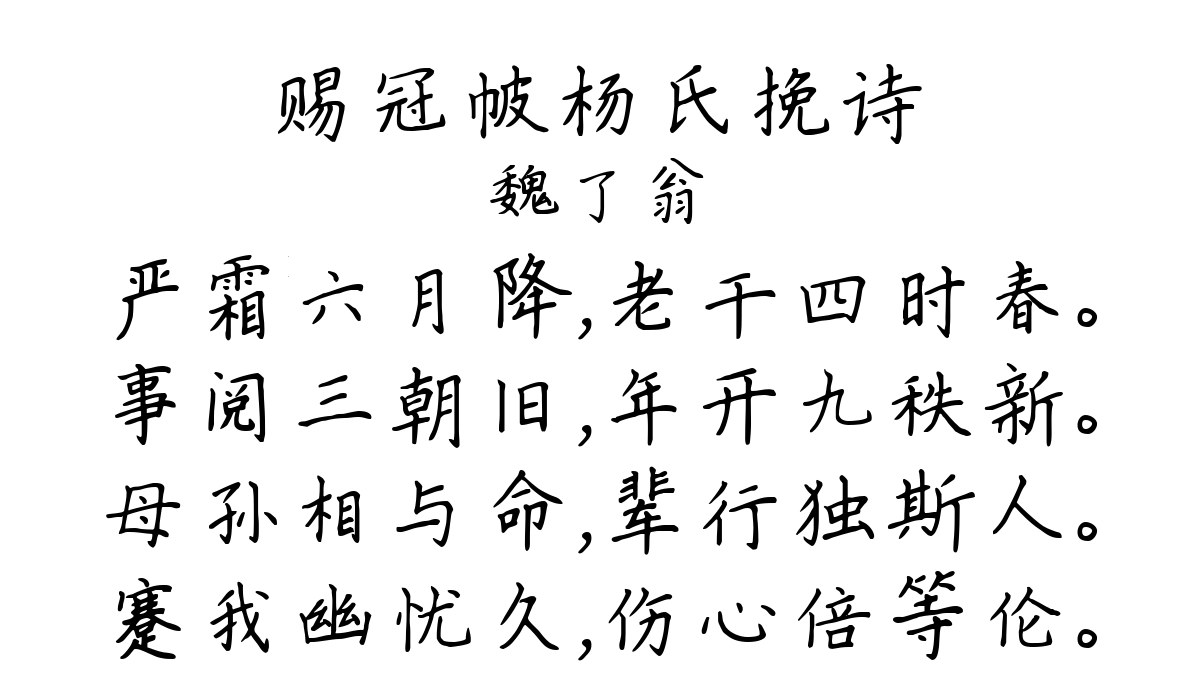 赐冠帔杨氏挽诗
魏了翁
严霜六月降,老干四时春。
事阅三朝旧,年开九秩新。
母孙相与命,辈行独斯人。
蹇我幽忧久,伤心倍等伦。